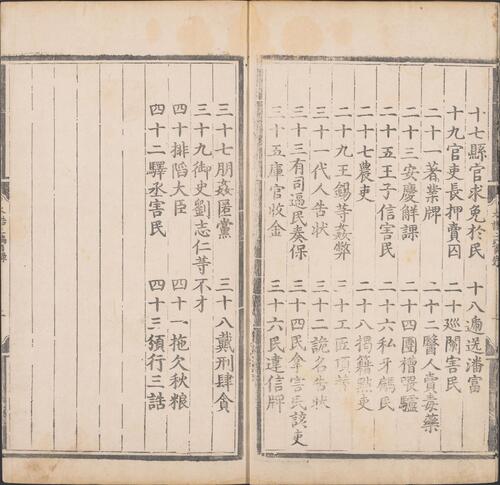 十七縣官求免於民　十八遞送潘富
十九官吏長押賣囚　二十巡闌害民
二十一著業牌　二十二醫人賣毒藥
二十三安慶觧課　二十四團槽喂驢
二十五王子信害民　二十六私牙騙民
二十七農吏　二十八獨籍點吏
二十九王錫等姦弊　三十工匠頂替
三十一代人告狀　三十二詭名告狀
三十三有司逼民奏保　三十四民拿害民該吏
三十五庫官收金　三十六民違信牌
三十七朋姦匿黨　三十八戴刑肆貪
三十九御史劉志仁等不才
四十排陷大臣　四十一拖欠秋粮
四十二驛丞害民　四十三頒行三誥